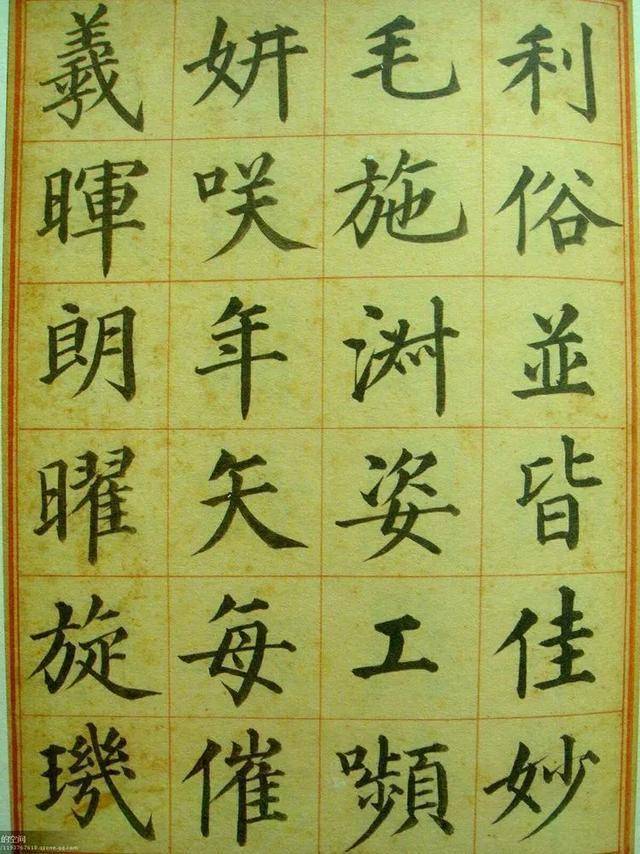 利俗並皆佳妙
毛施淑姿工嚬
妍咲年矢每催
羲暉朗曜旋璣
的空间
1193767618.qzone.qq.com